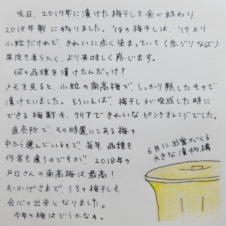 先日、2017年に漬けた梅干しを食べ終わり、
2018年製に移りました。'18の梅干しは、'17より
小粒だけれど、きれいに赤く染まっていて(赤じそなど)
果肉も柔らかく、より美味しく感じます。
何の品種を漬けたんだっけ?
メモを見ると、小粒の南高梅で、しっかり熟したもので
漬けていました。そういえば、梅干しが完成した時に
できる梅酢も、クリアできれいなピンクオレンジでした。
直売所で、その時置いてある梅の
中から選んでいるので、毎年、品種も
作者も違うのですが、2018年の
戸口さんの南高梅は最高!
おかげさまで、うちの梅干しも
会心の出来となりました。
今年の梅はどうかなぁ。
6月に出番がくる
大きな漬物樽